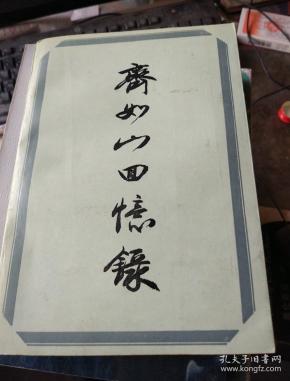 齊如山回憶錄
孔夫子旧书网
www.kongfz.com